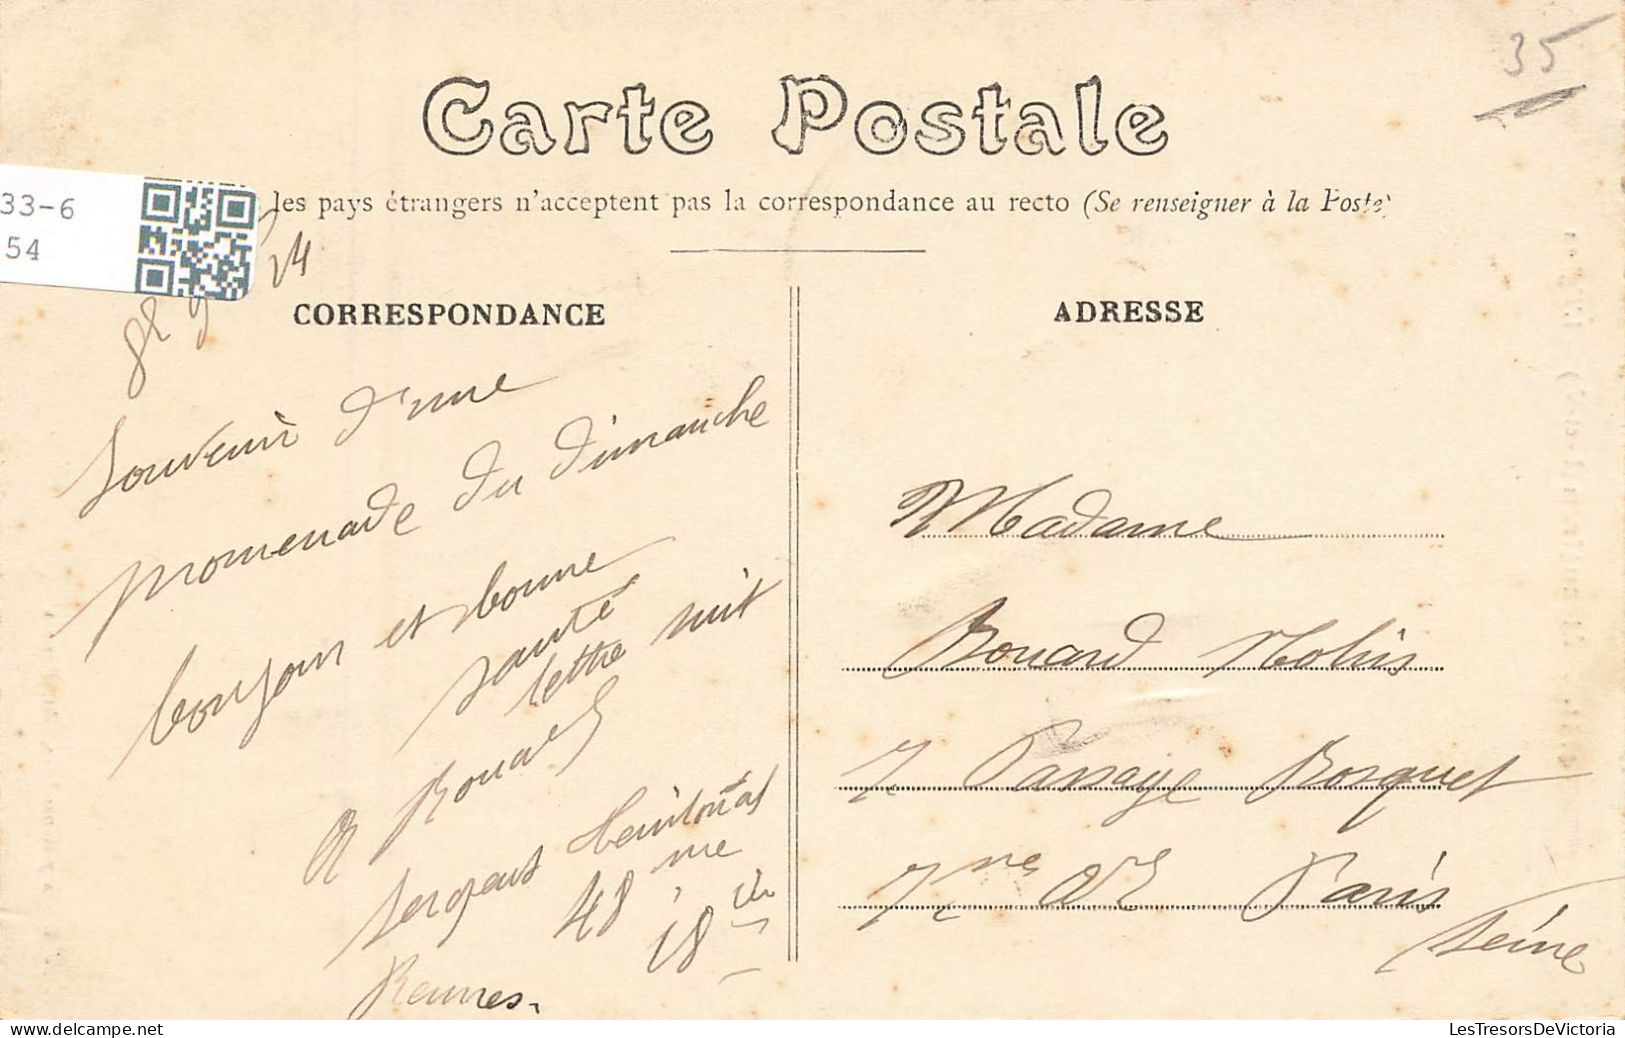 35
Carte Postale
les pays étrangers n'acceptent pas la correspondance au recto (Se renseigner à la Poste)
33-6
54
14
CORRESPONDANCE
Souvenir d'une
promenade du dimanche
bonjour et bonne
santé
lettre suit
R Rouard
Sergent
48 me
18
Rennes.
ADRESSE
Madame
Rouard
7 Passage Bosquet
7me Paris
Seine
LesTresorsDeVictoria